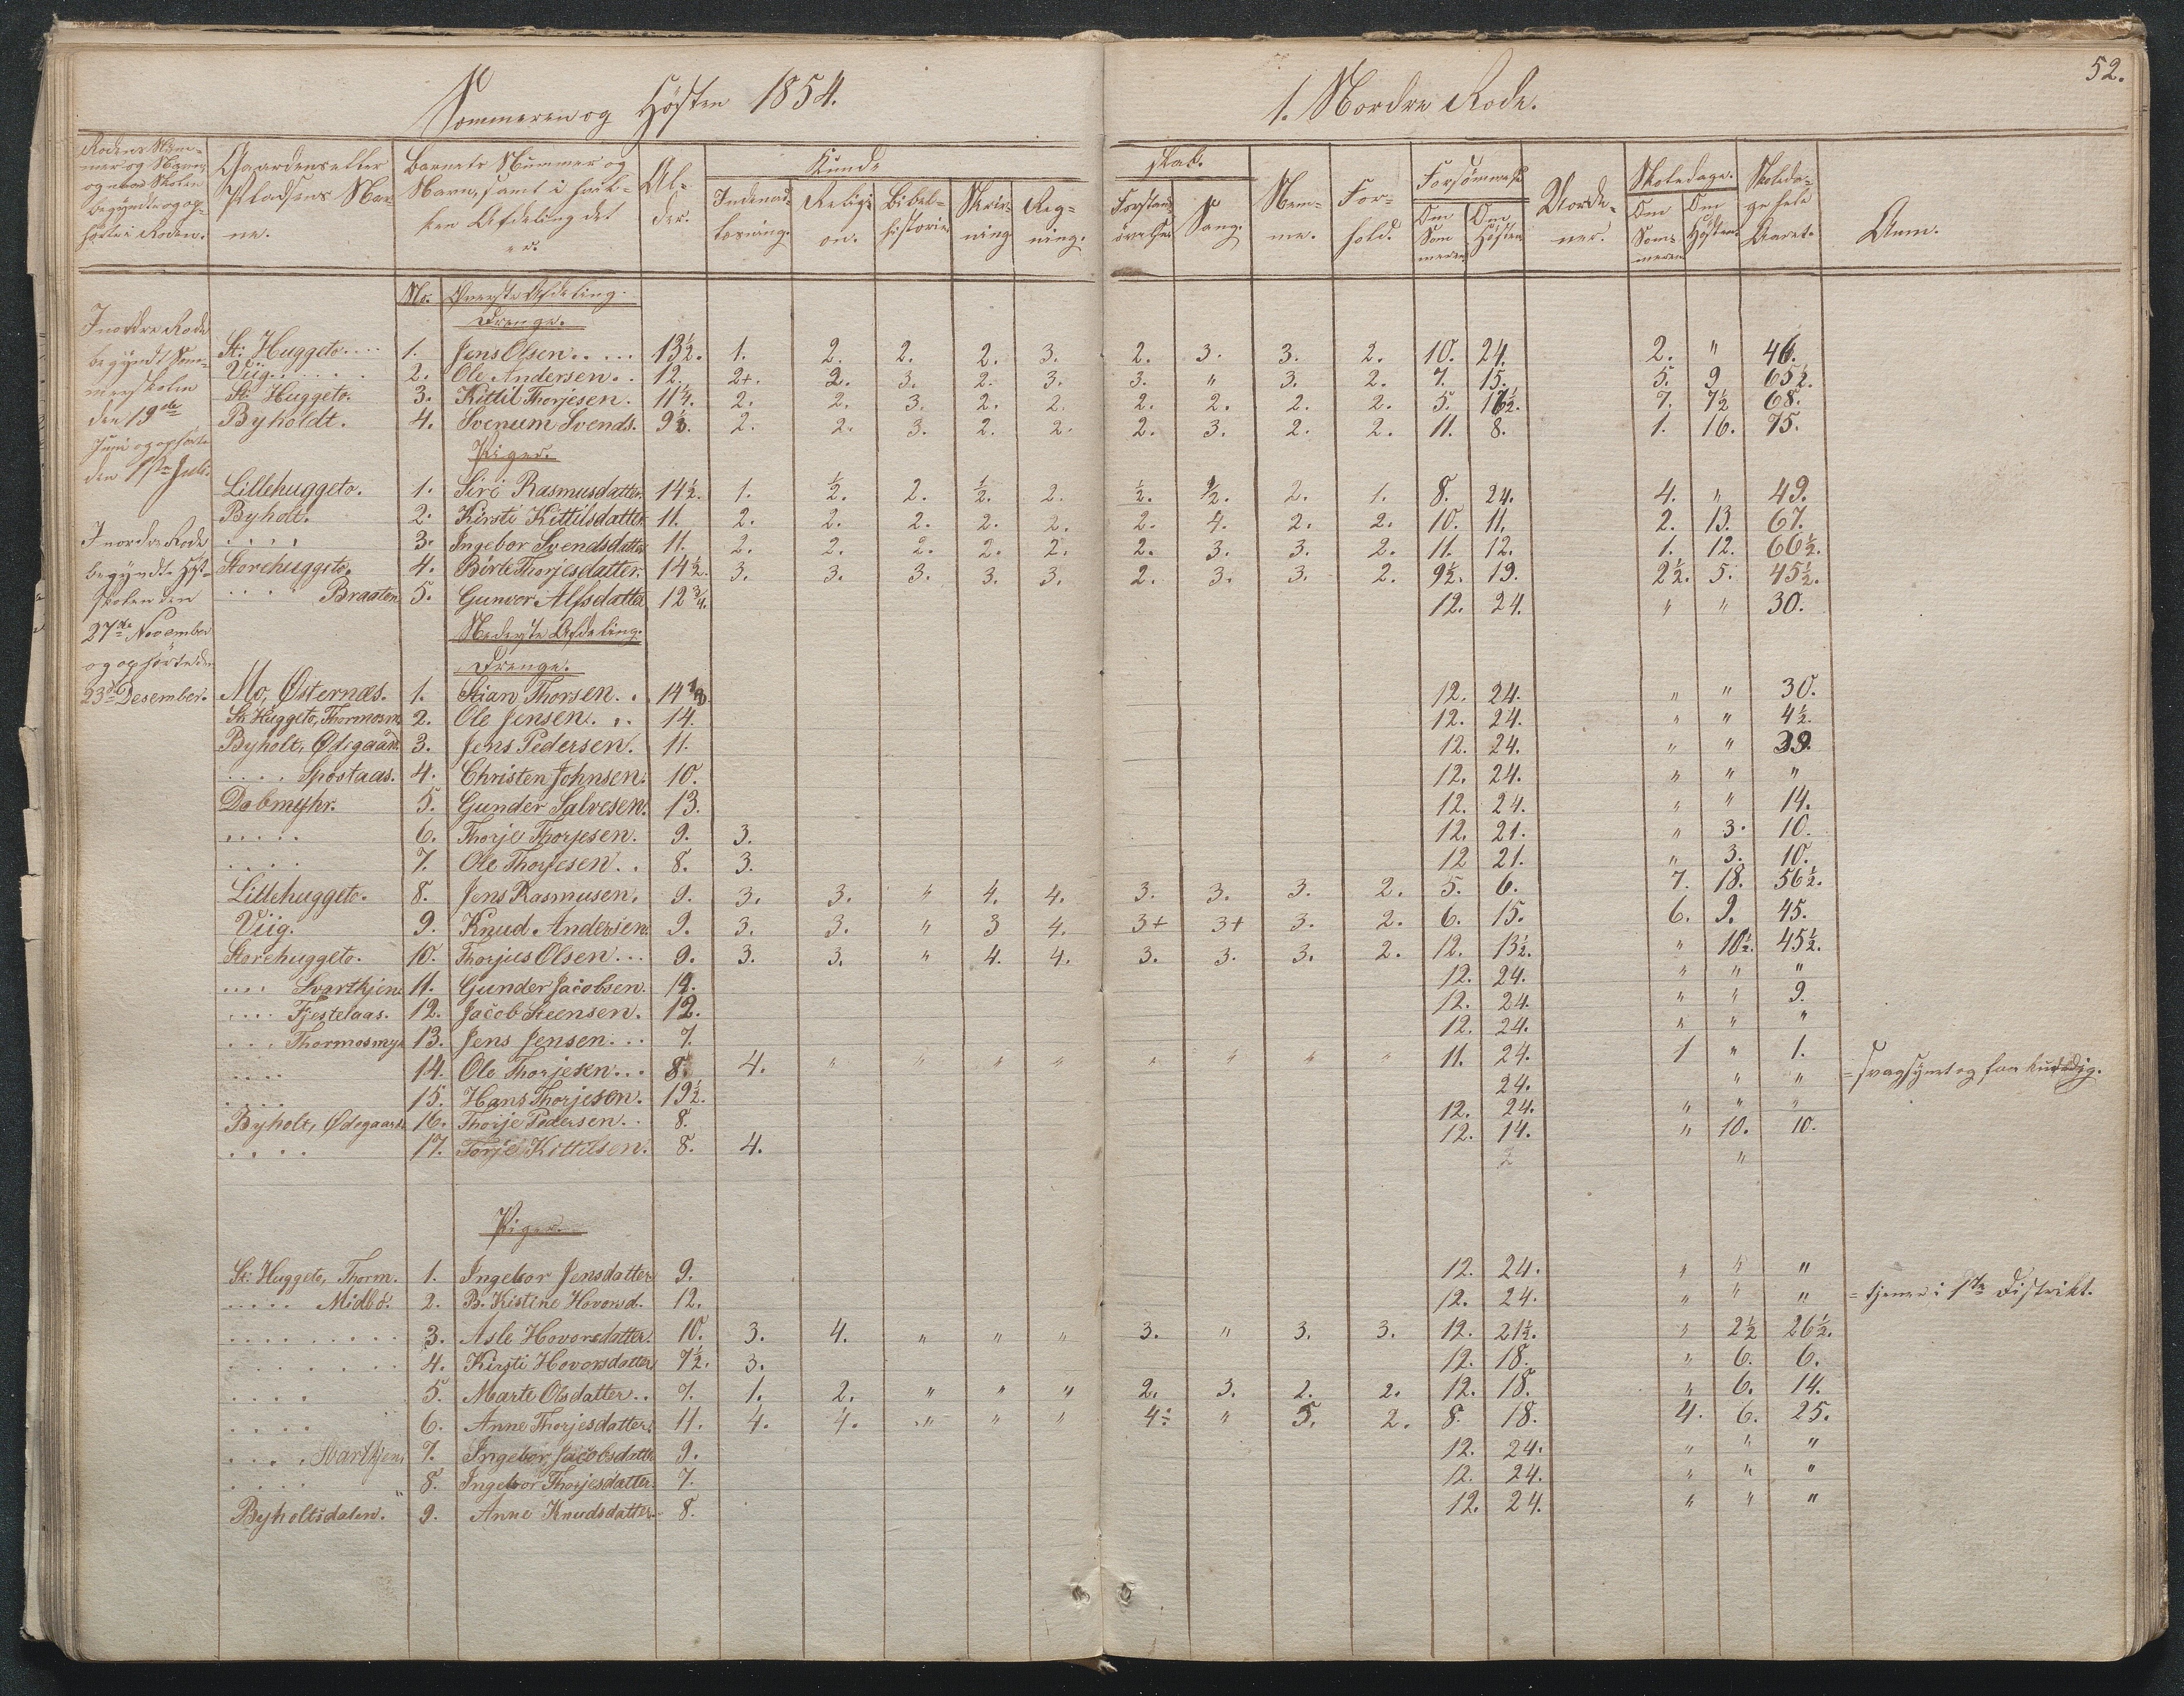 Sommeren og Hösten 1854. 1. Nordre Rode. 52.
Rodens Num-
mer og Navn
og naar Skolen
begyndte og op-
hørte i Roden.
Gaardens eller
Pladsens Nav-
ne.
Barnets Nummer og
Navn, samt i hvil-
ken Afdeling det
er.
Al-
der.
Kund-
Indenad-
læsning.
Religi-
on.
Bibel-
historie
Skriv-
ning
Reg-
ning.
skab.
Forstan-
øvelse.
Sang.
Nem-
me.
For-
hold.
Forsömmelse
Om
Som
meren
Om
Hösten
Vorde-
ner.
Skoledage.
Om
Som-
meren
Om
Hösten.
Skoleda-
ge hele
Aaret.
Anm.
I nordre Rode
begyndt Som-
merskolen
den 19de
Juni og ophørte
den 1ste Juli.
I nordre Rode
begyndte Høst-
skolen den
27de November
og ophørte den
23de Desember.
No. Øverste Afdeling.
Drenge.
St: Huggeto.... 1. Jens Olsen..... 13½. 1. 2. 2. 2. 3. 2. 3. 3. 2. 10. 24. 2. " 46.
Viig...... 2. Ole Andersen.. 12. 2+. 2. 3. 2. 3. 3. " 3. 2. 7. 15. 5. 9 65½.
St: Huggeto. 3. Kittil Thorjesen. 11¼. 2. 2. 3. 2. 2. 2. 2. 2. 2. 5. 16½. 7. 7½ 68.
Byholdt. 4. Svenum Svends. 9½. 2. 2. 3. 2. 2. 2. 3. 2. 2. 11. 8. 1. 16. 75.
Piger.
Lillehuggeto. 1. Siri Rasmusdatter. 14½. 1. ½. 2. ½. 2. ½. ½. 2. 1. 8. 24. 4. " 49.
Byholt. 2. Kirsti Kittilsdatter. 11. 2. 2. 2. 2. 2. 2. 4. 2. 2. 10. 11. 2. 13. 67.
.... 3. Ingebor Svendsdatter 11. 2. 2. 2. 2. 2. 2. 3. 3. 2. 11. 12. 1. 12. 66½.
Storehuggeto. 4. Birte Thorjesdatter. 14½. 3. 3. 3. 3. 3. 2. 3. 3. 2. 9½. 19. 2½. 5. 45½.
.... Braaten 5. Gunvor Alfsdatter 12¾. 12. 24. " " 30.
Nederste Afdeling.
Drenge.
Mo, Østernæs. 1. Stian Thorsen. . 14 12. 24. " " 30.
St: Huggeto, Thormosm 2. Ole Jensen... 14. 12. 24. " " 4½.
Byholt, Ødegaar. 3. Jens Pedersen. 11. 12. 24. " " 39.
.... Spostaas. 4. Christen Johnsen. 10. 12. 24. " " "
Dalmyhr. 5. Gunder Salvesen. 13. 12. 24. " " 14.
..... 6. Thorje Thorjesen. 9. 3. 12. 21. " 3. 10.
.... 7. Ole Thorjesen.. 8. 3. 12 21. " 3. 10.
Lillehuggeto. 8. Jens Rasmusen. 9. 3. 3. " 4. 4. 3. 3. 3. 2. 5. 6. 7. 18. 56½.
Viig. 9. Knud Andersen. 9. 3. 3. " 3 4. 3+ 3+ 3. 2. 6. 15. 6. 9. 45.
Storehuggeto. 10. Thorjus Olsen... 9. 3. 3. " 4. 4. 3. 3. 3. 2. 12. 13½. " 10½. 45½.
.... Svartkjen 11. Gunder Jacobsen. 12. 24. " " "
.... Fjestelaas. 12. Jacob Steensen. 12. 12. 24. " " 9.
... Thormosmy 13. Jens Jensen... 7. 12. 24. " " "
.... 14. Ole Thorjesen... 8. 4. " " " " " " " " 11. 24. 1 " 1.
.... 15. Hans Thorjesen. 19½. 24. " " = svagsynet og
Byholt, Ødegaard. 16. Thorje Pedersen.. 8. 12. 24. " " "
.... 17. Torje Kittilsen. 8. 4. 12. 14. " 10. 10.
2 "
Piger.
St: Huggeto, Thorm. 1. Ingebor Jensdatter 9. 12. 24. " " "
.... Midbö. 2. B. Kistine Hovorsd. 12. 12. 24. " " " = tjener i 1ste Distrikt.
......... 3. Asle Hovorsdatter. 10. 3. 4. " " " 3. " 3. 3. 12. 21½. " 2½ 26½.
....... 4. Kirsti Hovorsdatter 7½. 3. 12. 18. " 6. 6.
.... 5. Marte Olsdatter.. 7. 1. 2. " " " 2. 3. 2. 2. 12. 18. " 6. 14.
.... 6. Anne Thorjesdatter. 11. 4. 4. " " " 4÷ " 3. 2. 8. 18. 4. 6. 25.
.... Svartkjen. 7. Ingebor Jacobsdatte 9. 12. 24. " " "
.... 8. Ingebor Thorjesdatter. 7. 12. 24. " " "
Byholtsdalen. 9. Anne Knudsdatter. 8. 12. 24. " " "